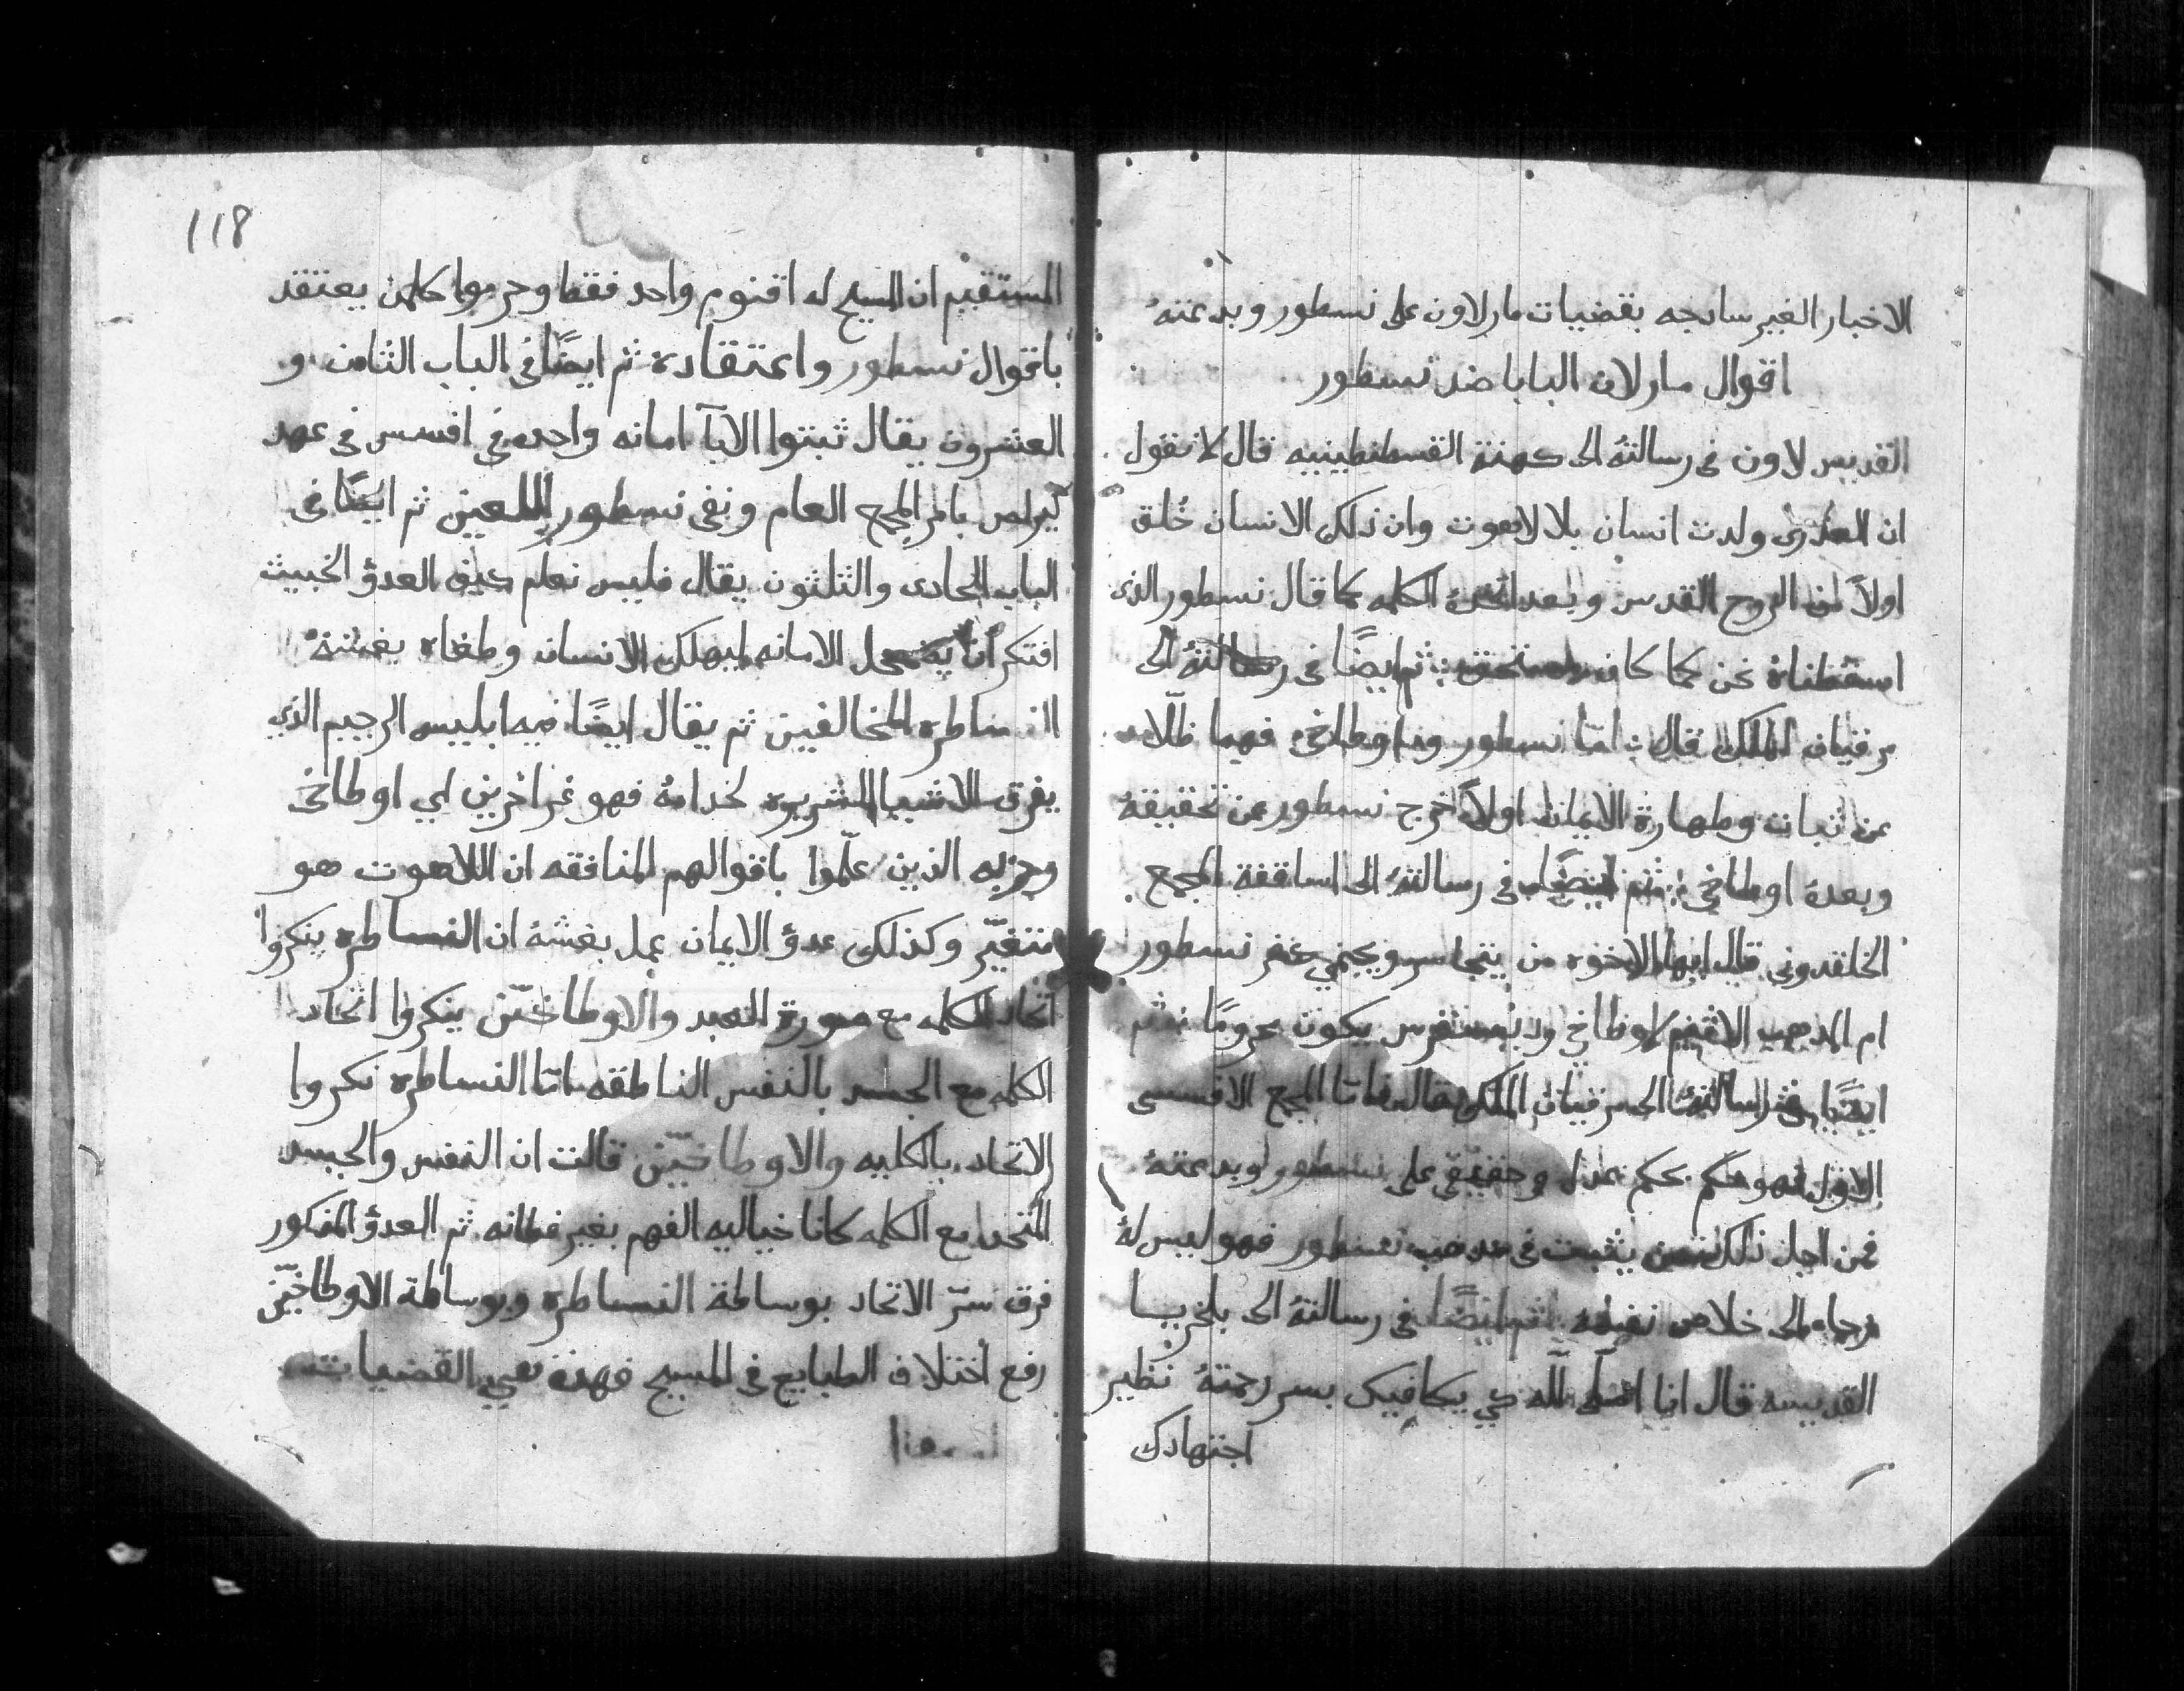 الاخبار الغير سانجه بقضيات مار لاون على نسطور وبدعتهُ
اقوال مار لاون البابا ضد نسطور
القديس لاون فى رسالتهُ الى كهنة القسطنطينيه قال لا نقول
ان العذرى ولدت انسان بلا لاهوت وان ذلك الانسان خُلق
اولاً من الروح القدس وبعد اتخذهُ الكلمه كما قال نسطور الذى
اسقطناهُ نحن كما كان مستحق ثم ايضًا فى رسالتهُ الى
مرقيان الملك قال امّا نسطور و اوطاخى فهما ظلّا
عن ثبات وطهارة الايمان اولاً خرج نسطور عن تحقيقهُ
وبعدهُ اوطاخي ثم ايضًا فى رسالتهُ الى اساقفة المجمع
الخلقدونى قال ايها الاخوه من يتجاسر ويحتمي كفر نسطور
ام المذهب الاثيم لاوطاخي وديسقرس يكون محرومًا ثم
ايضًا فى رسالتهُ الى مرقيان الملك قال فامّا المجمع الافسسى
الاول فهو حكم بحكم عدل وحقيقي على نسطور وبدعتهُ
فمن اجل ذلك من يثبت فى مذهب نسطور فهو ليس لهُ
رجاه الى خلاص نفسه ثم ايضًا فى رسالتهُ الى بلخريا
القديسه قال انا اسأل اللّه كي يكافيك بسر رحمتهُ نظير
اجتهادك
118
المستقيم ان المسيح له اقنوم واحد فقط وحرموا كلمن يعتقد
باقوال نسطور واعتقاده ثم ايضًا فى الباب الثامن و
العشرون يقال ثبتوا الابآ امانه واحده في افسس فى عهد
كيرلص بامر المجمع العام ونفى نسطور اللعين ثم ايضًا فى
الباب الحادى والثلثون يقال فليس نعلم كيف العدوّ الخبيث
افتكر ان يضمحل الامانه ليهلك الانسان وطغاه بغشهُ
النساطره المخالفين ثم يقال ايضًا فيه ابليس الرجيم الذي
يفرق الاشيا الشريره لخدامهُ فهو غر اخرين اي اوطاخى
وحزبه الذين علّموا باقوالهم المنافقه ان اللاهوت هو
متغيّر وكذلك عدوّ الايمان عمل بغشهُ ان النساطره ينكروا
اتحاد الكلمه مع صورة العبد والاوطاخيّن ينكروا اتحاد
الكلمه مع الجسد بالنفس الناطقه امّا النساطره نكروا
الاتحاد بالكليه والاوطاخيّن قالت ان النفس والجسد
المتحدا مع الكلمه كانا خياليه الفهم بغير فطانه ثم العدوّ المذكور
فرق سرّ الاتحاد بوساطة النساطره وبوساطة الاوطاخيّن
رفع اختلاف الطبايع فى المسيح فهذه هي القضيا